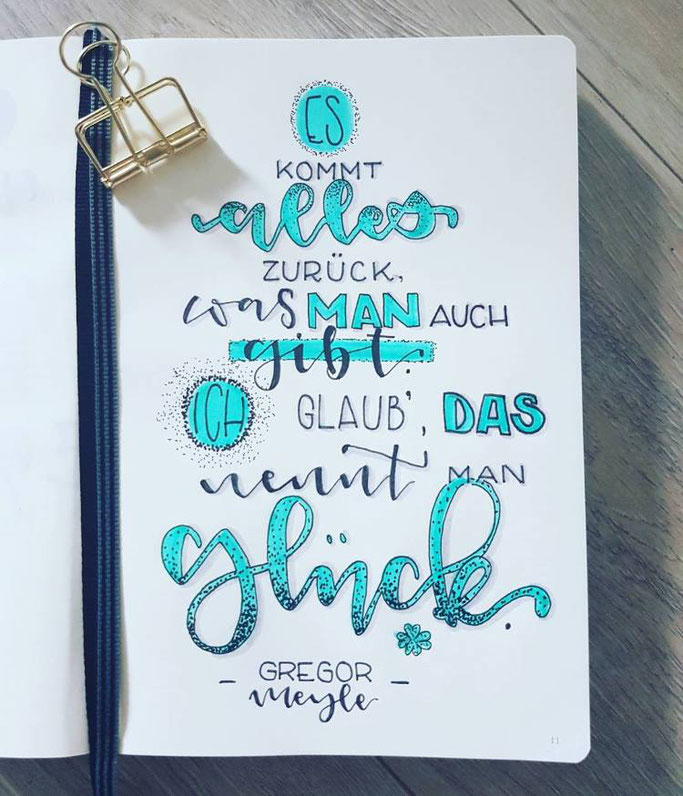 ES
KOMMT
alles
ZURÜCK,
was MAN AUCH
gibt.
ICH GLAUB', DAS
nennt MAN
Glück.
– GREGOR –
Meyle
11